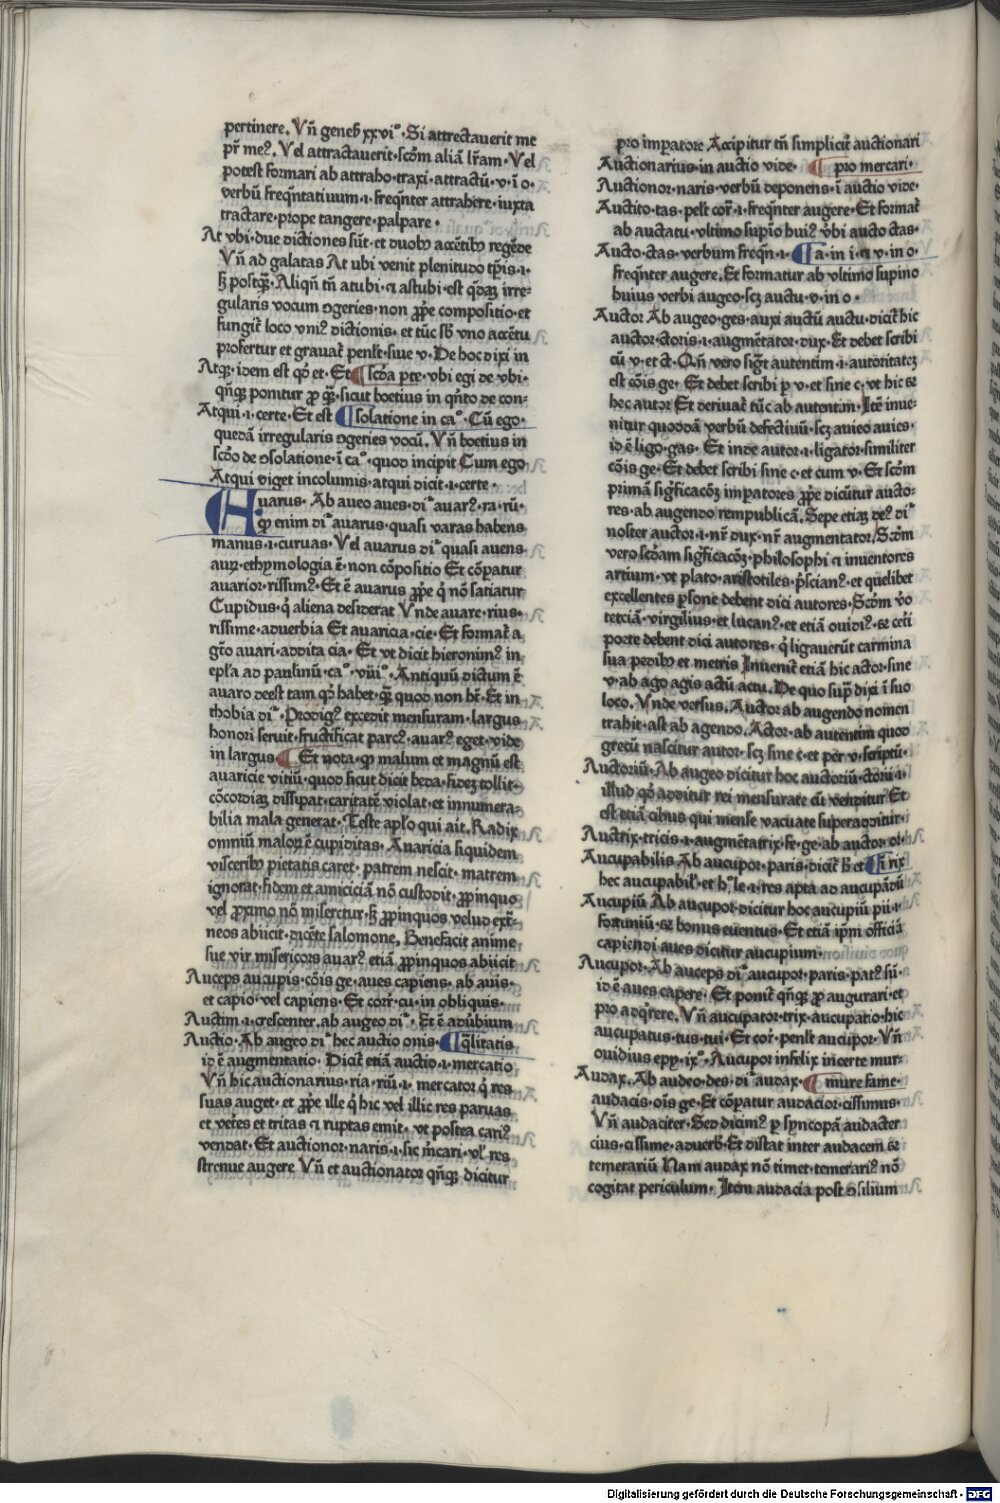 pertinere. Vñ geneš xxvi°. Si attrectauerit me
pr̄ me⁹. Vel attractauerit. scd̄m aliā lr̄am. Vel
potest formari ab attraho. traxi. attractū. v. ī o.
verbū freq̄ntatiuum .i. freq̄nter attrahere. iuxta
tractare. prope tangere. palpare.
At vbi. due dictiones sūt. et duob⁹ accētib⁹ regēde
Vñ ad galatas At ubi venit plenitudo tp̄is .i.
sꝫ postq̄ꝫ. Aliqñ tñ atubi. ⁊ astubi. est q̄dā irre-
gularis vocum ꝯgeries. non ꝓpͤe compositio. et
fungit᷑ loco vni⁹ dictionis. et tūc sb̄ vno accētu
profertur et grauat᷑ penlt̄. siue v. De hoc dixi in
Atqꝫ. idem est qđ et. Et ¶ scd̄a pte. vbi egi de vbi.
qñqꝫ ponitur ꝓ q̄ꝫ. sicut boetius in qn̄to de con-
Atqui .i. certe. Et est ¶ solatione in ca°. Cū ego.
quedā irregularis ꝯgeries vocū. Vñ boetius in
scd̄o de ꝯsolatione. ī ca°. quod incipit Cum ego
Atqui viget incolumis. atqui dicit .i. certe.
Auarus. Ab aueo aues. di᷑ auar⁹. ra. rū.
qꝫ enim di᷑ auarus. quasi varas habens
manus .i. curuas. Vel auarus di᷑ quasi auens
auꝝ. ethymologia ē. non cōpositio Et cōpatur
auarior. rissim⁹. Et ē auarus ꝓpͤe q̇ nō satiatur
Cupidus. q̇ aliena desiderat Vnde auare. rius.
rissime. aduerbia Et auaricia. cie. Et format᷑ a
gt̄o auari. addita cia. Et vt dicit hieronim⁹ in
epl̄a ad paulinū. ca°. viii°. Antiquū dictum ē
auaro deest tam qđ habet. q̄ꝫ quod non hꝫ. Et in
thobia di᷑. Prodig⁹ excedit mensuram. largus
honori seruit. fructificat parc⁹. auar⁹ eget. vide
in largus ¶ Et nota. qꝫ malum et magnū est
auaricie vitiū. quod sicut dicit beda. fidez tollit.
cōcordiaꝫ dissipat. caritatē violat. et innumera-
bilia mala generat. Teste apl̄o qui ait. Radix
omniū maloꝝ ē cupiditas. Auaricia siquidem
viscerib⁹ pietatis caret. patrem nescit. matrem
ignorat. fidem et amiciciā nō custodit. ꝓpinquo
vel ꝓximo nō miseretur. sꝫ ꝓpinquos velud ext̄-
neos abiicit. dicēte salomone. Benefacit anime
sue vir misericors auar⁹ etiā ꝓpinquos abiicit
Auceps aucupis. cōis ge. aues capiens. ab auis.
et capio. vel capiens. Et corr̄. cu. in obliquis.
Auctim .i. crescenter. ab augeo di᷑. Et ē adūbium
Auctio. Ab augeo di᷑ hec auctio onis. ¶ q̄litatis
id ē augmentatio. Dicit᷑ etiā auctio .i. mercatio
Vñ hic auctionarius. ria. riū .i. mercator q̇ res
suas auget. et ꝓpͤe ille q̇ hic vel illic res paruas
et vet̄es et tritas ⁊ ruptas emit. vt postea cari⁹
vendat. Et auctionor. naris .i. sic m̄cari. vt̄ res
strenue augere Vñ et auctionator qñqꝫ dicitur
pro imperatore Accipitur tñ simplicit᷑ auctionari
Auctionarius. in auctio vide. ¶ pro mercari.
Auctionor. naris. verbū deponens. ī auctio vide.
Auctito. tas. pelt̄ cor̄. i. freq̄nter augere. Et format᷑
ab auctatu. vltimo supīo hui⁹ v̄bi aucto ctas.
Aucto. ctas. verbum freq̄ñ .i. ¶ a. in i. ⁊ v. in o.
freq̄nter augere. Et formatur ab vltimo supino
huius verbi augeo. scꝫ auctu. v. in o.
Auctor Ab augeo. ges. auxi auctū auctu. dicit᷑ hic
auctor. ctoris. i. augmētator. dux. Et debet scribi
cū v. et ct. Qñ vero sigt̄ autentim .i. autoritateꝫ
est cōis ge. Et debet scribi p v. et sine c. vt hic ⁊
hec autor Et deriuat᷑ tūc ab autentim. Itē inue-
nitur quoddā verbū defectiuū. scꝫ auieo auies.
id ē ligo. gas. Et inde autor .i. ligator. similiter
cōis ge. Et debet scribi sine c. et cum v. Et scd̄m
primā sigfficacōꝫ imperatores ꝓpͤe dicūtur aucto-
res. ab augendo rempublicā. Sepe etiaꝫ de⁹ di᷑
noster auctor. i. nr̄ dux. nr̄ augmentator. Scd̄m
vero scd̄am sigfficacōꝫ. philosophi ⁊ inuentores
artium. vt plato. aristotiles. p̄scian⁹. et quelibet
excellentes p̱sone debent dici autores. Scd̄m v̄o
tetciā. virgilius. et lucan⁹. et etiā ouidi⁹. ⁊ cet̄i
poete debent dici autores. q̇ ligauerūt carmina
sua pedib⁹ et metris Inuenit᷑ etiā hic actor. sine
v. ab ago agis actū actu. De quo sup̄ dixi ī suo
loco. Vnde versus. Auctor ab augendo nomen
trahit. ast ab agendo. Actor. ab autentim quod
grecū nascitur autor. scꝫ sine c. et per v. scriptū.
Auctoriū. Ab augeo dicitur hoc auctoriū. ctorii .i.
illud qđ additur rei mensurate cū venditur Et
est etiā cibus qui mense vacuate superadditur.
Auctrix. tricis .i. augmētatrix. fe. ge. ab auctor. or.
Aucupabilis Ab aucupor. paris. dicit᷑ h̄ et ¶ i. rix
hec aucupabil᷑. et h° le .i. res apta ad aucupādū
Aucupiū Ab aucupor. dicitur hoc aucupiū pii .i.
fortuniū. ⁊ bonus euentus. Et etiā ipm̄ officiū
capiendi aues dicitur aucupium.
Aucupor. Ab auceps di᷑ aucupor. paris. pat⁹ sū.
id ē aues capere. Et ponit᷑ qñqꝫ ꝓ augurari. et
pro adq̇rere. Vñ aucupator. trix. aucupatio. hic
aucupatus. tus. tui. Et cor̄. penlt̄ aucupor. Vñ
ouidius epp. ix°. Aucupor infelix incerte mur-
Audax. Ab audeo. des. di᷑ audax. ¶ mure fame.
audacis. oīs ge. Et cōpatur audacior. cissimus.
Vñ audaciter. Sed dicim⁹ p syncopā audacter
cius. cissime. aduerb̄. Et distat inter audacem ⁊
temerariū Nam audax nō timet. temerari⁹ nō
cogitat periculum. Item audacia post ꝯsilium
Digitalisierung gefördert durch die Deutsche Forschungsgemeinschaft - DFG